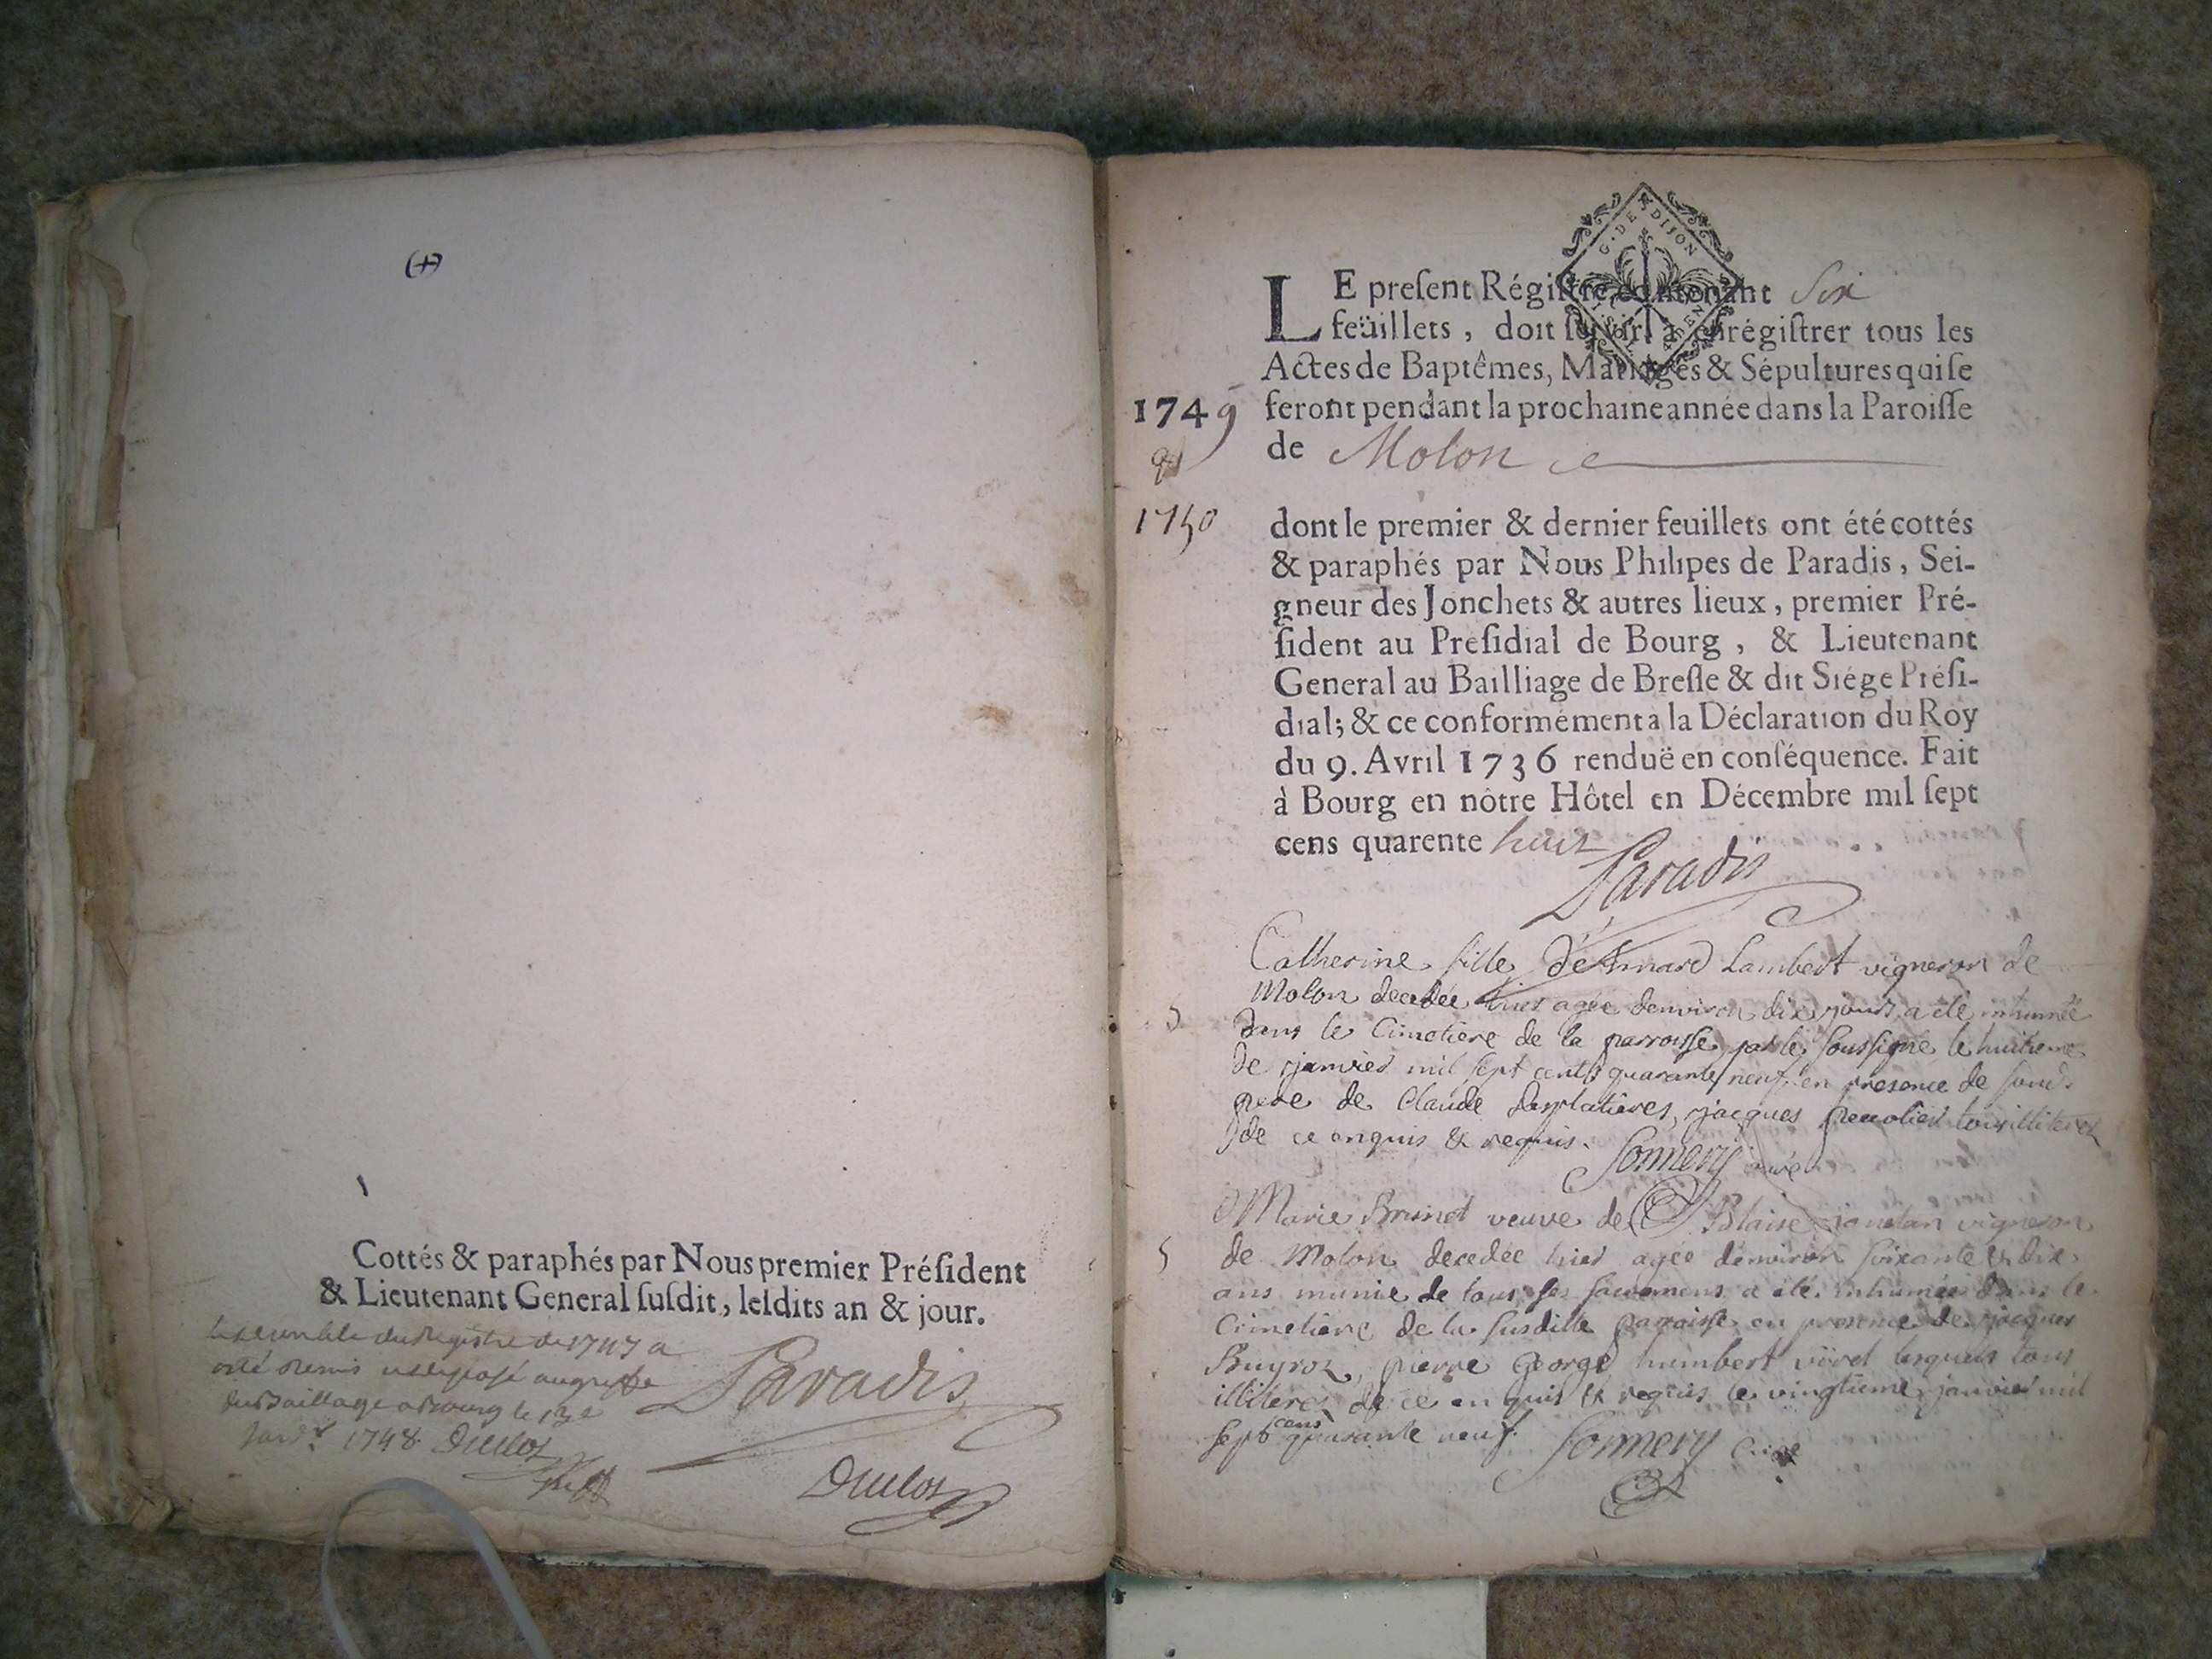 Cottés & paraphés par Nous premier Préſident
& Lieutenant General ſuſdit, leſdits an & jour.
du Registre de 1747 a
esté remis et deposé au greffe
du Baillage a Bourg le
1748 Duclos
Paradis
Duclos
G. DE DIJON
LE preſent Régiſtre contenant Six
feüillets, doit ſervir à enrégiſtrer tous les
Actes de Baptêmes, Mariages & Sépultures qui ſe
1749 feront pendant la prochaine année dans la Paroiſſe
de Molon
1750 dont le premier & dernier feuillets ont été cottés
& paraphés par Nous Philipes de Paradis, Sei-
gneur des Jonchets & autres lieux, premier Pré-
ſident au Preſidial de Bourg, & Lieutenant
General au Bailliage de Breſſe & dit Siége Préſi-
dial; & ce conformément à la Déclaration du Roy
du 9. Avril 1736 renduë en conſéquence. Fait
à Bourg en nôtre Hôtel en Décembre mil ſept
cens quarente huit
Paradis
Catherine fille Lambert vigneron de
Molon decedée hier agée denviron dix jours a été inhumée
S dans le Cimetière de la parroisse par le soussigné le huitieme
de janvier mil sept cents quarante neuf en presence de
pere de Claude Desplatieres, jacques tous illiteres
de ce enquis & requis.
Sonnery curé
Marie Brunet veuve de Blaise vigneron
S de Molon decedée hier agée denviron soixante & dix
ans munie de tous ses sacremens a été inhumée dans le
Cimetiere de la susditte Parroisse en presence de jacques
pierre George humbert lesquels tous
illiteres de ce enquis & requis le vingtieme janvier mil
sept cens quarante neuf. Sonnery Curé